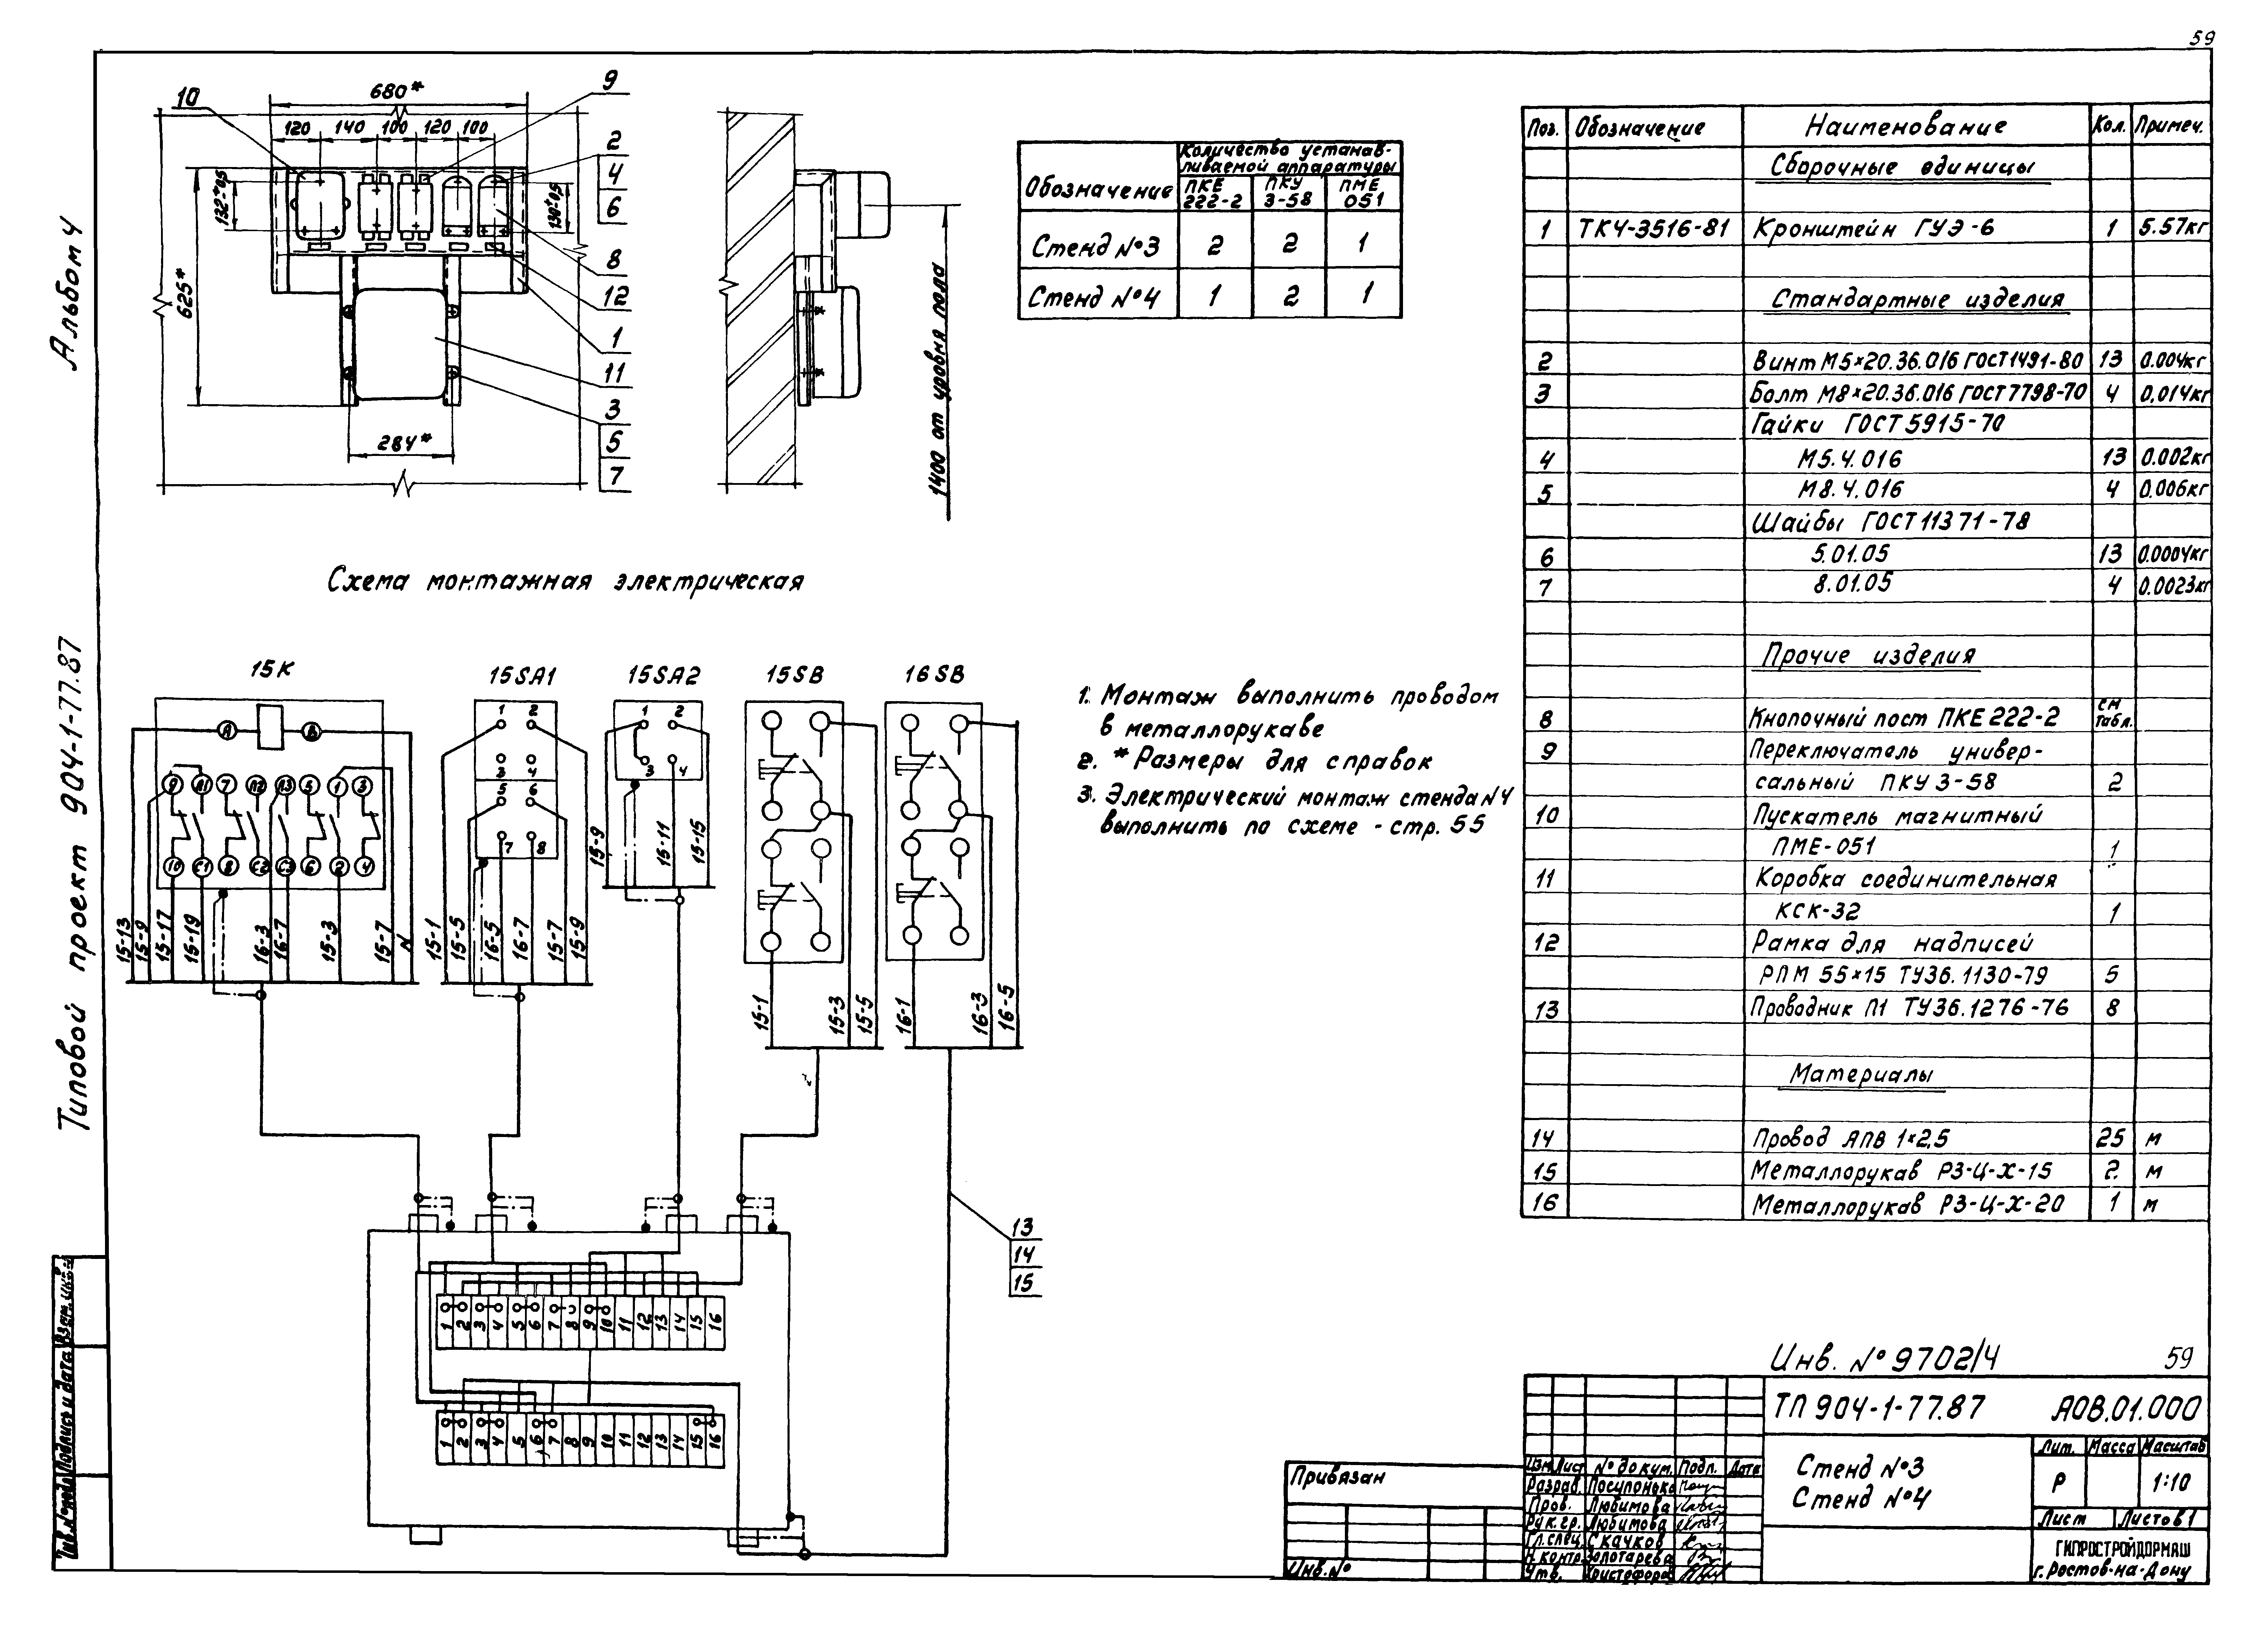 59
Альбом 4
Типовой проект 904-1-77.87
680*
120 140 100 120 100
132±0,5
130±0,5
625*
284*
10
9
2
4
6
8
12
1
11
3
5
7
1400 от уровня пола
Обозначение
Количество устанав-
ливаемой аппаратуры
ПКЕ 222-2
ПКУ 3-58
ПМЕ 051
Стенд №3 2 2 1
Стенд №4 1 2 1
Схема монтажная электрическая
15К
А В
9 Л1 7 Л2 Л3 5 1 3
10 С1 8 С2 С3 6 2 4
15-13 15-9 15-17 15-19 16-3 16-7 15-3 15-7 N
15SA1
1 2
3 4
5 6
7 8
15-1 15-5 16-5 16-7 15-7 15-9
15SA2
1 2
3 4
15-9 15-11 15-15
15SB
15-1 15-3 15-5
16SB
16-1 16-3 16-5
13
14
15
1 2 3 4 5 6 7 8 9 10 11 12 13 14 15 16
1 2 3 4 5 6 7 8 9 10 11 12 13 14 15 16
1. Монтаж выполнить проводом
в металлорукаве
2. * Размеры для справок
3. Электрический монтаж стенда N4
выполнить по схеме - стр. 55
Поз. Обозначение Наименование Кол. Примеч.
Сборочные единицы
1 ТКЧ-3516-81 Кронштейн ГУЭ-6 1 5.57кг
Стандартные изделия
2 Винт М5×20.36.016 ГОСТ1491-80 13 0.004кг
3 Болт М8×20.36.016 ГОСТ7798-70 4 0,014кг
Гайки ГОСТ 5915-70
4 М5.4.016 13 0.002кг
5 М8.4.016 4 0.006кг
Шайбы ГОСТ 11371-78
6 5.01.05 13 0.0004кг
7 8.01.05 4 0.0023кг
Прочие изделия
8 Кнопочный пост ПКЕ 222-2 см табл.
9 Переключатель универ-
сальный ПКУ 3-58 2
10 Пускатель магнитный
ПМЕ-051 1
11 Коробка соединительная
КСК-32 1
12 Рамка для надписей
РПМ 55×15 ТУ36.1130-79 5
13 Проводник П1 ТУ36.1276-76 8
Материалы
14 Провод АПВ 1×2,5 25 м
15 Металлорукав РЗ-Ц-Х-15 2 м
16 Металлорукав РЗ-Ц-Х-20 1 м
Инв. №9702/4 59
ТП 904-1-77.87 АОВ.01.000
Стенд №3
Стенд №4
Лит. Масса Масштаб
Р 1:10
Лист Листов 1
ГИПРОСТРОЙДОРМАШ
г. Ростов-на-Дону
Изм Лист № докум. Подп. Дата
Разраб. Посупонько
Пров. Любимова
Рук.гр. Любимова
Гл.спец. Скачков
Н.контр. Золотарева
Утв.
Привязан
Инв.№
Инв.№подл. Подпись и дата Взам.инв.№